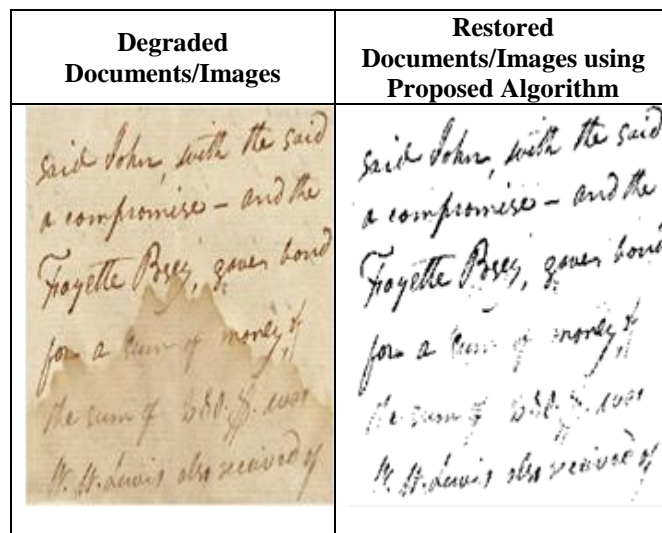 Degraded
Documents/Images
Restored
Documents/Images using
Proposed Algorithm
said John, with the said
a compromise – and the
Fayette Posey, gave bond
for a sum of money, of
the sum of was
St. Lewis also received of
said John, with the said
a compromise – and the
Fayette Posey, gave bond
for a sum of money, of
the sum of was
St. Lewis also received of